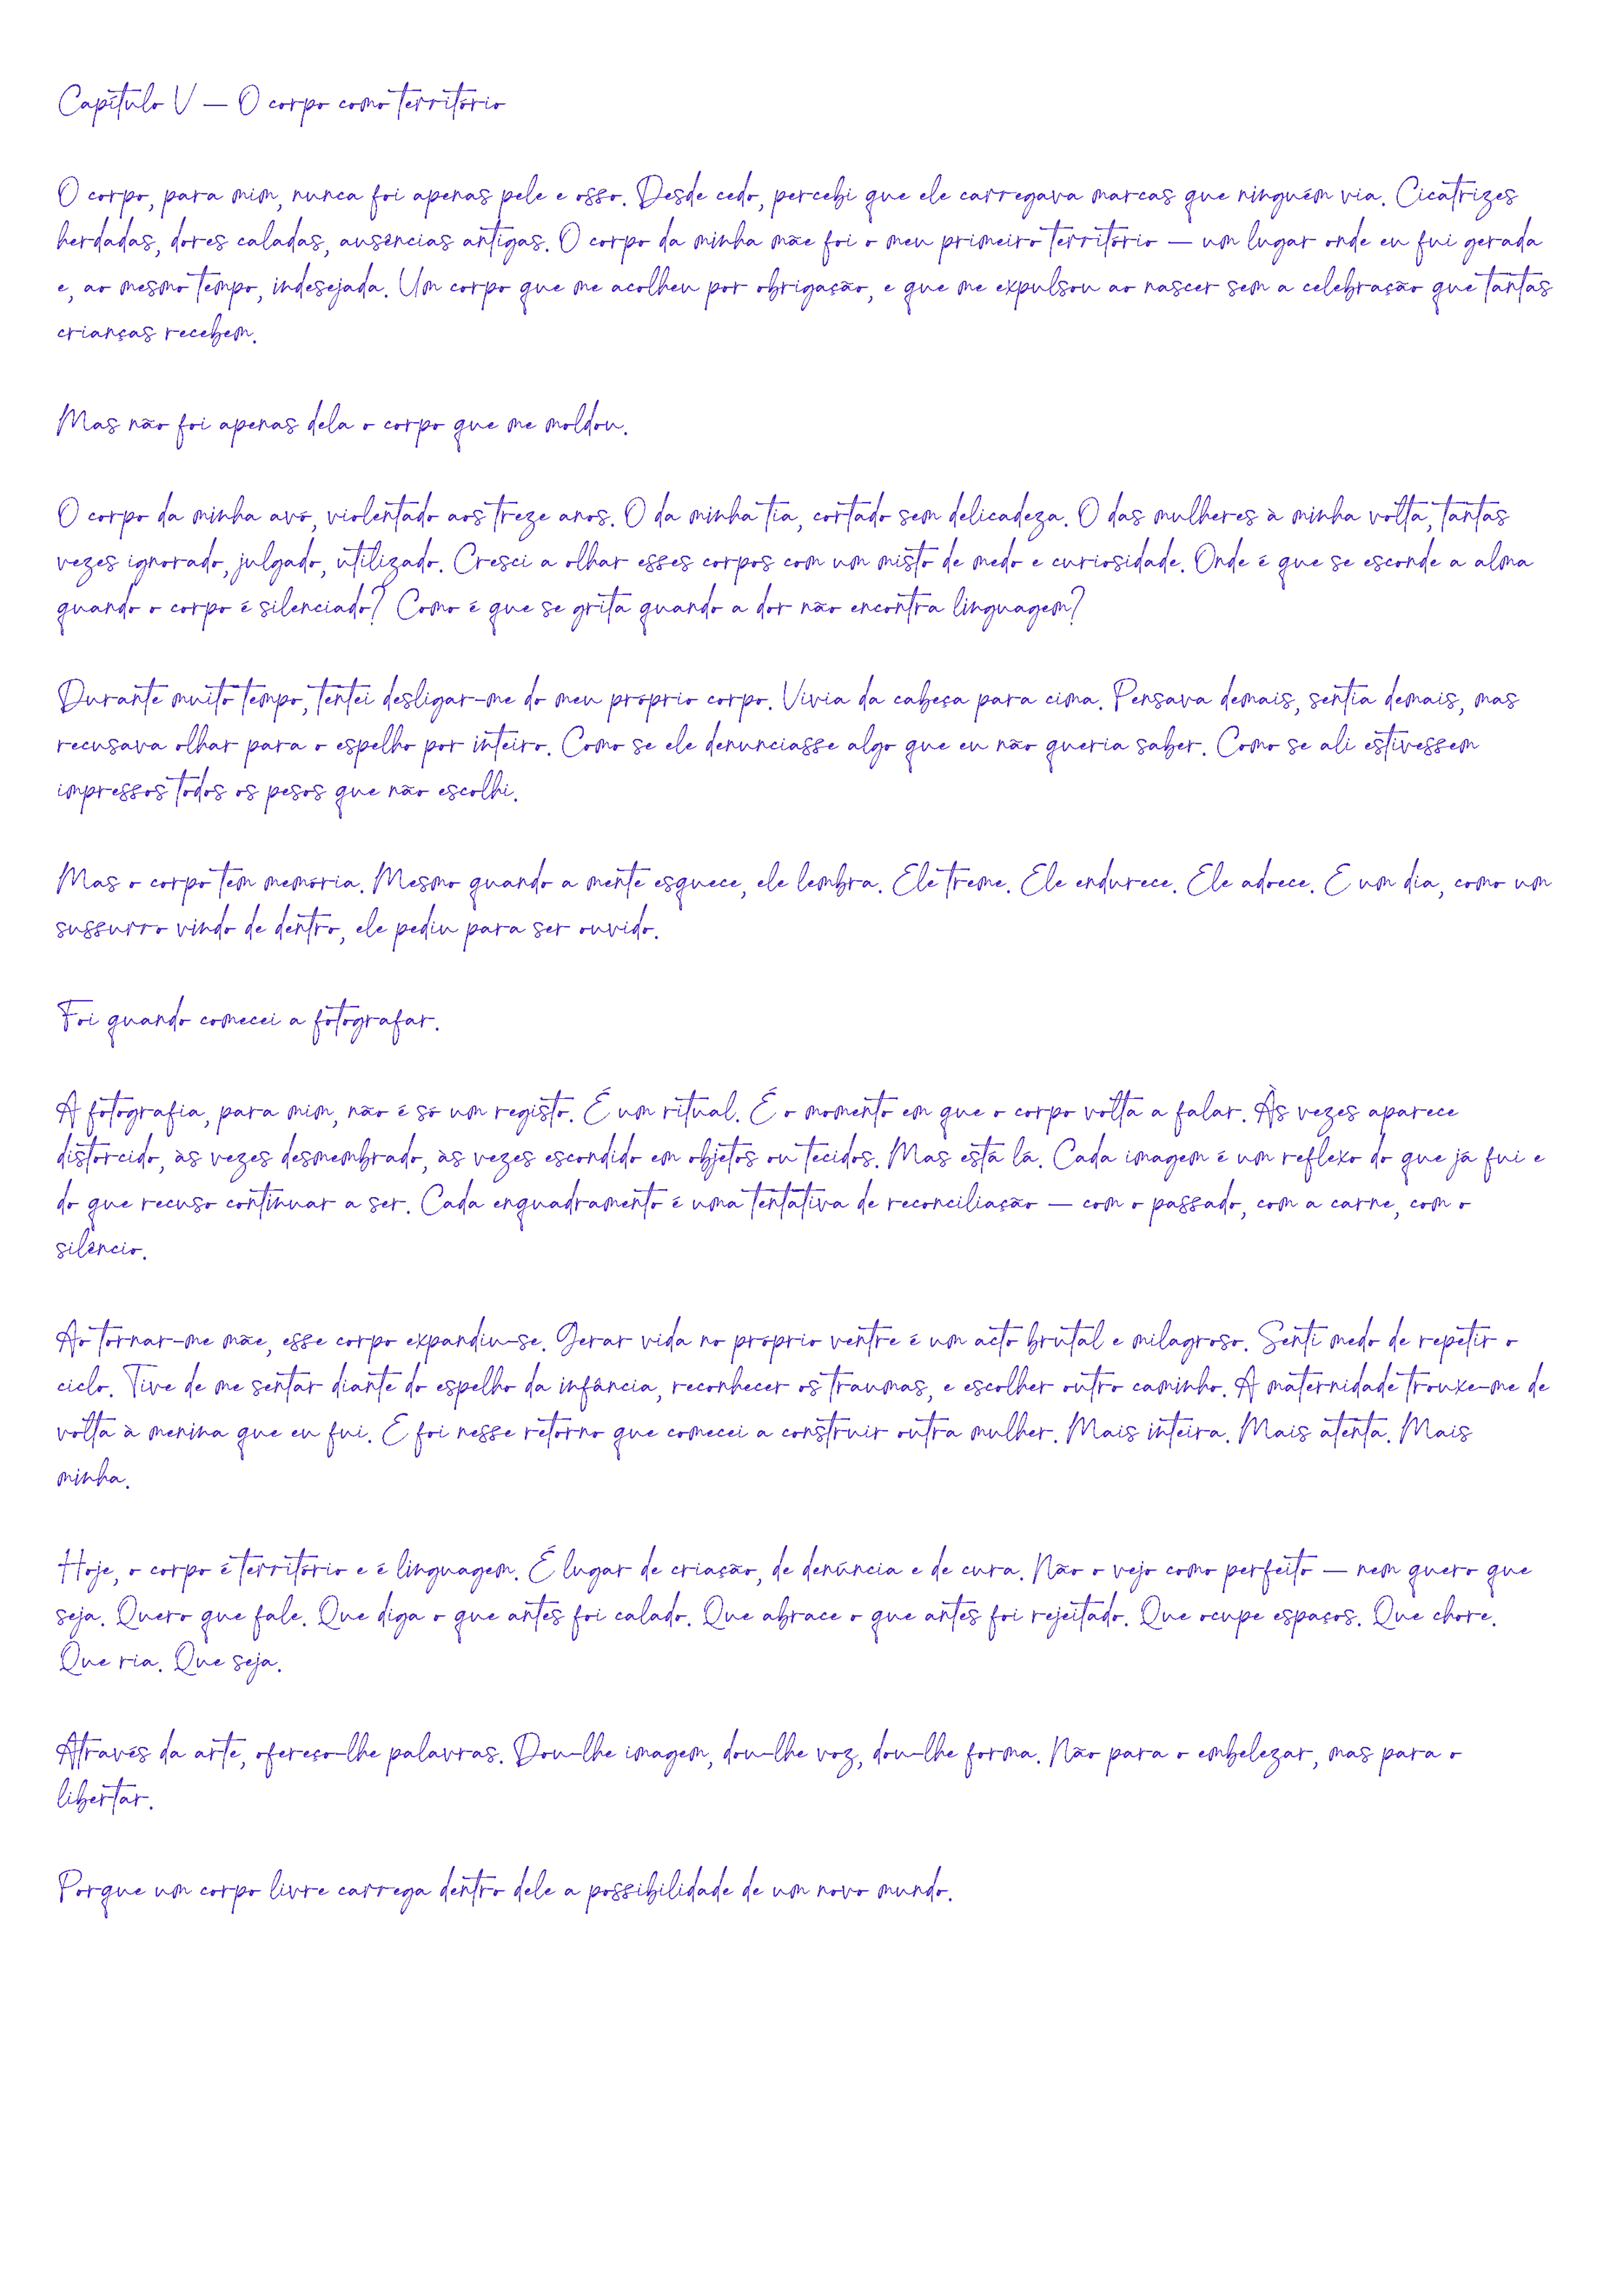 Capítulo V — O corpo como território
O corpo, para mim, nunca foi apenas pele e osso. Desde cedo, percebi que ele carregava marcas que ninguém via. Cicatrizes
herdadas, dores caladas, ausências antigas. O corpo da minha mãe foi o meu primeiro território — um lugar onde eu fui gerada
e, ao mesmo tempo, indesejada. Um corpo que me acolheu por obrigação, e que me expulsou ao nascer sem a celebração que tantas
crianças recebem.
Mas não foi apenas dela o corpo que me moldou.
O corpo da minha avó, violentado aos treze anos. O da minha tia, cortado sem delicadeza. O das mulheres à minha volta, tantas
vezes ignorado, julgado, utilizado. Cresci a olhar esses corpos com um misto de medo e curiosidade. Onde é que se esconde a alma
quando o corpo é silenciado? Como é que se grita quando a dor não encontra linguagem?
Durante muito tempo, tentei desligar-me do meu próprio corpo. Vivia da cabeça para cima. Pensava demais, sentia demais, mas
recusava olhar para o espelho por inteiro. Como se ele denunciasse algo que eu não queria saber. Como se ali estivessem
impressos todos os pesos que não escolhi.
Mas o corpo tem memória. Mesmo quando a mente esquece, ele lembra. Ele treme. Ele endurece. Ele adoece. E um dia, como um
sussurro vindo de dentro, ele pediu para ser ouvido.
Foi quando comecei a fotografar.
A fotografia, para mim, não é só um registo. É um ritual. É o momento em que o corpo volta a falar. Às vezes aparece
distorcido, às vezes desmembrado, às vezes escondido em objetos ou tecidos. Mas está lá. Cada imagem é um reflexo do que já fui e
do que recuso continuar a ser. Cada enquadramento é uma tentativa de reconciliação — com o passado, com a carne, com o
silêncio.
Ao tornar-me mãe, esse corpo expandiu-se. Gerar vida no próprio ventre é um acto brutal e milagroso. Senti medo de repetir o
ciclo. Tive de me sentar diante do espelho da infância, reconhecer os traumas, e escolher outro caminho. A maternidade trouxe-me de
volta à menina que eu fui. E foi nesse retorno que comecei a construir outra mulher. Mais inteira. Mais atenta. Mais
minha.
Hoje, o corpo é território e é linguagem. É lugar de criação, de denúncia e de cura. Não o vejo como perfeito — nem quero que
seja. Quero que fale. Que diga o que antes foi calado. Que abrace o que antes foi rejeitado. Que ocupe espaços. Que chore.
Que ria. Que seja.
Através da arte, ofereço-lhe palavras. Dou-lhe imagem, dou-lhe voz, dou-lhe forma. Não para o embelezar, mas para o
libertar.
Porque um corpo livre carrega dentro dele a possibilidade de um novo mundo.